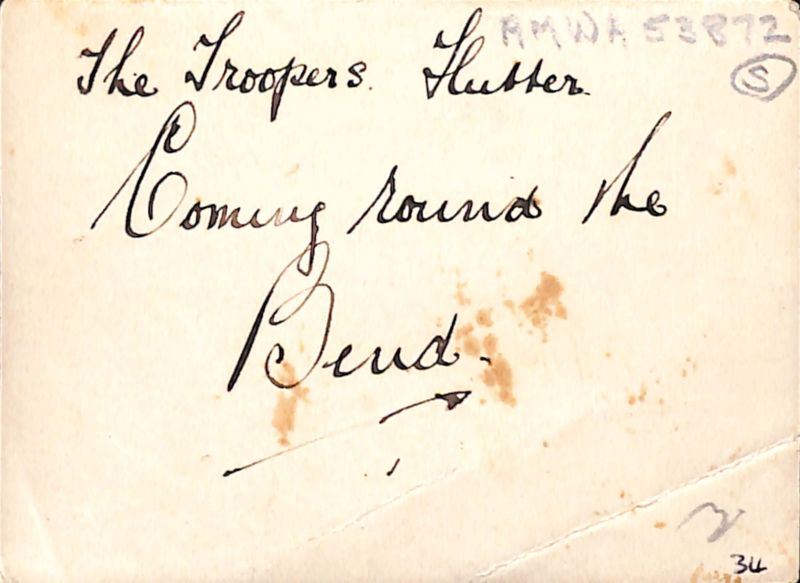 AMWA 53872
S
The Troopers. Flutter.
Coming round the
Bend.
34